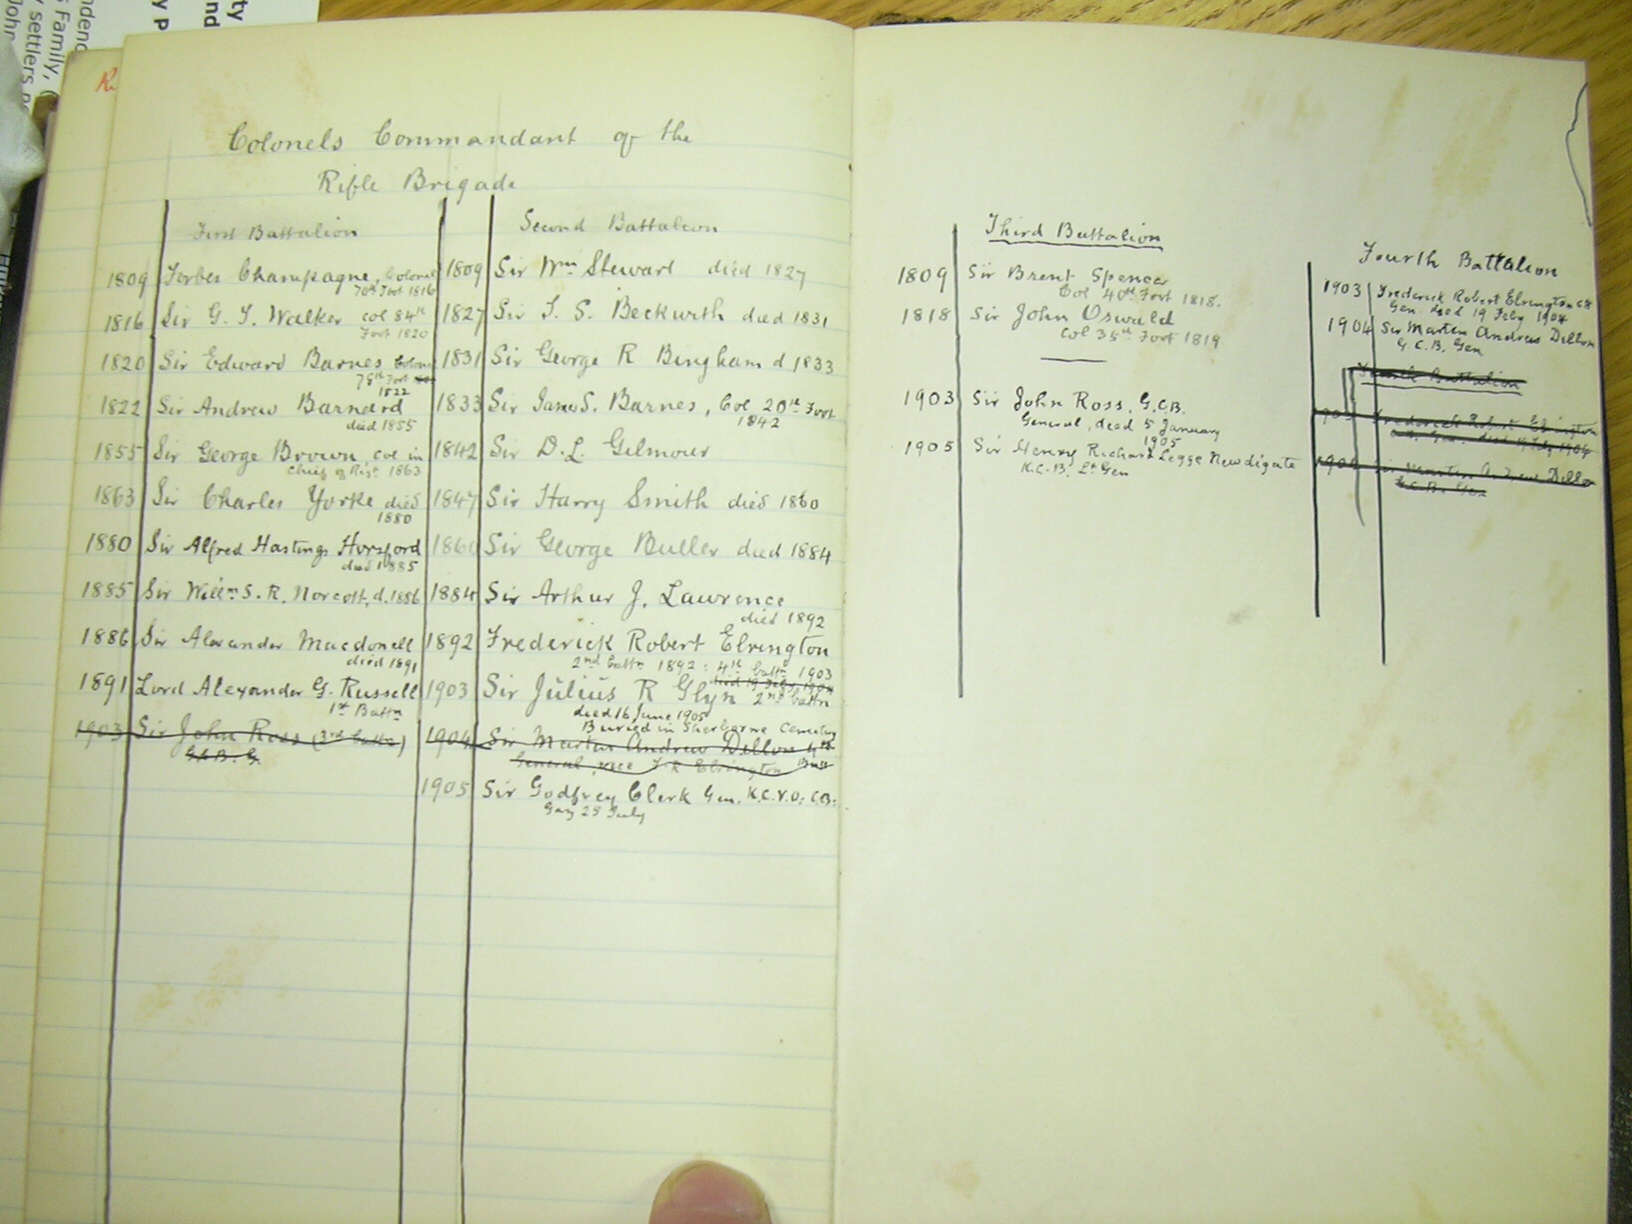 Colonels Commandant of the
Rifle Brigade
First Battalion
1809 Forbes Champagne, Colonel
70th Foot 1816
1816 Sir G. T. Walker col 84th
Foot 1820
1820 Sir Edward Barnes Colonel
78th Foot
1822
1822 Sir Andrew Barnard
died 1855
1855 Sir George Brown, col in
Chief of Rgt 1863
1863 Sir Charles Yorke died
1880
1880 Sir Alfred Hastings Horsford
died 1885
1885 Sir Willm S. R. Norcott, d. 1886
1886 Sir Alexander Macdonell
died 1891
1891 Lord Alexander G. Russell
1st Battn
1903 Sir John Ross (3rd battn)
G.C.B. G.
Second Battalion
1809 Sir Wm Stewart died 1827
1827 Sir T. S. Beckwith died 1831
1831 Sir George R Bingham d 1833
1833 Sir James S. Barnes, Col 20th Foot
1842
1842 Sir D. L. Gilmour
1847 Sir Harry Smith died 1860
1860 Sir George Buller died 1884
1884 Sir Arthur J. Lawrence
died 1892
1892 Frederick Robert Elrington
2nd battn 1892 : 4th battn 1903
died 19 Feby 1904
1903 Sir Julius R Glyn 2nd battn
died 16 June 1905
Buried in Sherborne Cemetery
1904 Sir Martin Andrew Dillon 4th
General, vice F. R Elrington Batt
1905 Sir Godfrey Clerk Gen. K.C.V.O: C.B:
Gaz 25 July
Third Battalion
1809 Sir Brent Spencer
Col 40th Foot 1818.
1818 Sir John Oswald
Col 35th Foot 1819
1903 Sir John Ross, G.C.B.
General, died 5 January
1905
1905 Sir Henry Richard Legge Newdigate
K.C.B. Lt Gen
Fourth Battalion
1903 Frederick Robert Elrington CB
Gen. died 19 Feby 1904
1904 Sir Martin Andrew Dillon
G.C.B. Gen
Fourth Battalion
1903 Frederick Robert Elrington
C.B. Gen. died 19 Feby 1904
1904 Sir Martin A. Dillon
G.C.B. Gen